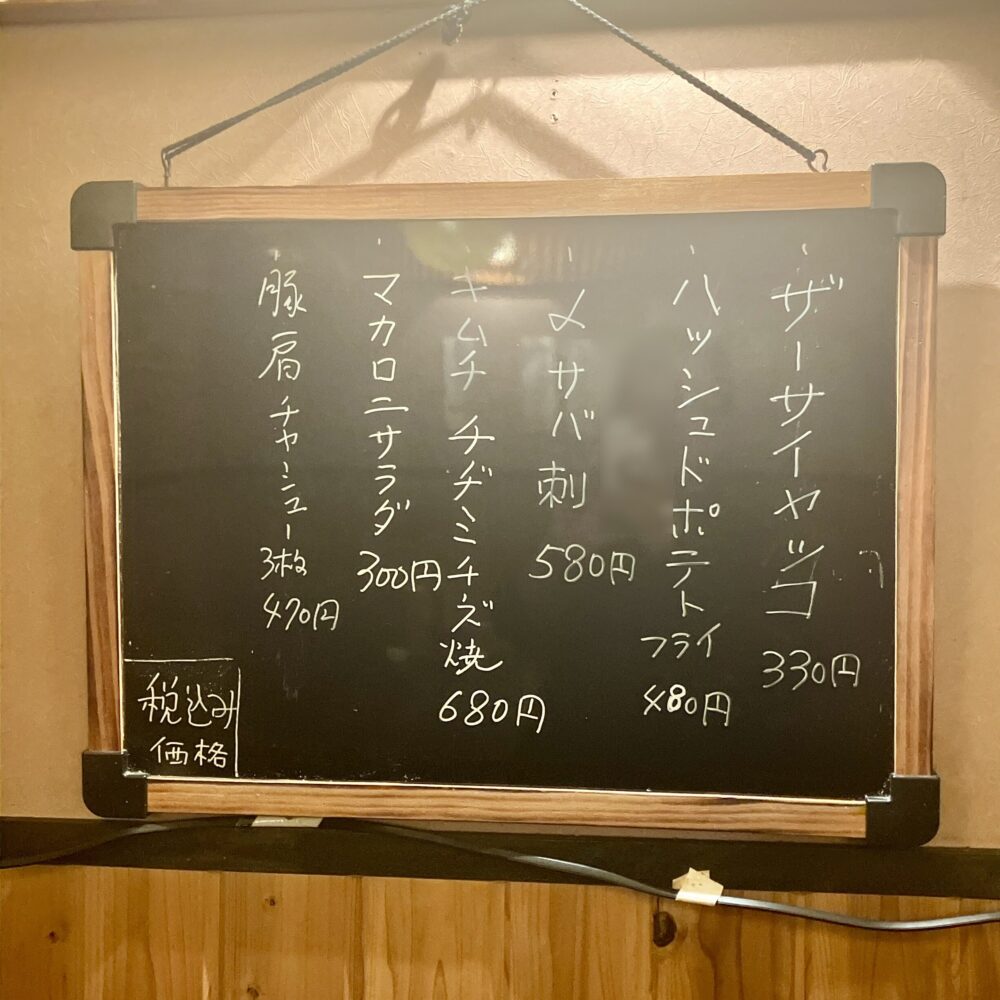 ・ザーサイヤッコ 330円
・ハッシュドポテト フライ 480円
・〆サバ刺 580円
・キムチ チヂミチーズ焼 680円
・マカロニサラダ 300円
・豚肩チャーシュー 3枚 470円
税込み
価格